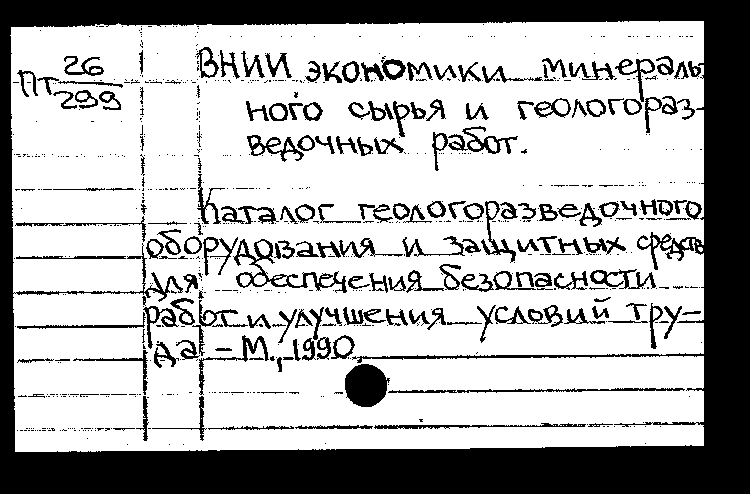 Пт 26/299
ВНИИ экономики минераль
ного сырья и геологораз-
ведочных работ.
Каталог геологоразведочного
оборудования и защитных средств
для обеспечения безопасности
работ и улучшения условий тру-
да - М., 1990.